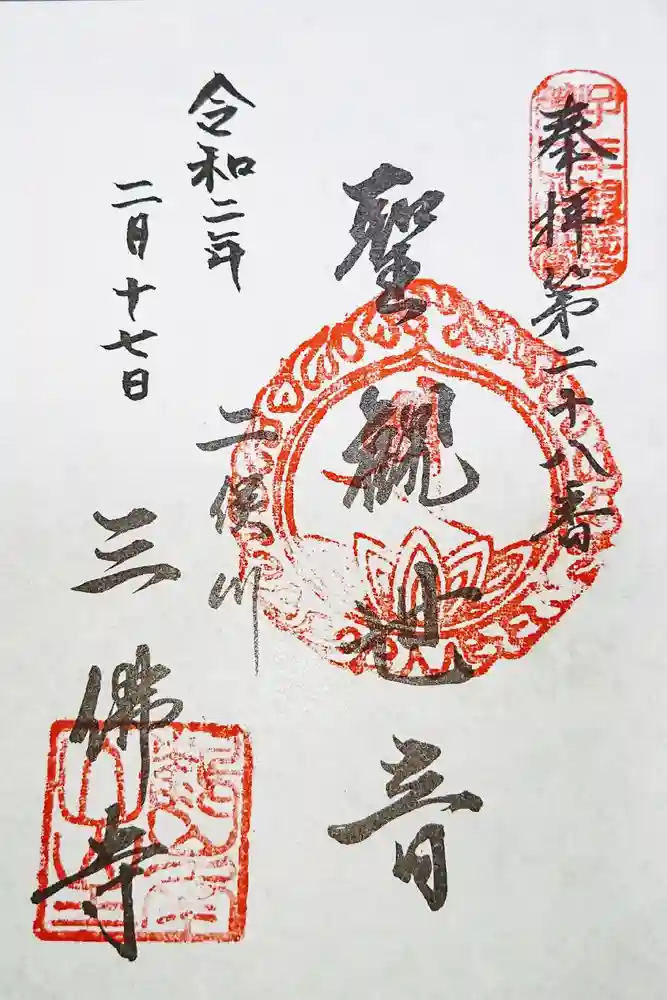 奉拝第二十八番
聖観世音
令和二年
二月十七日
二俣川
三佛寺